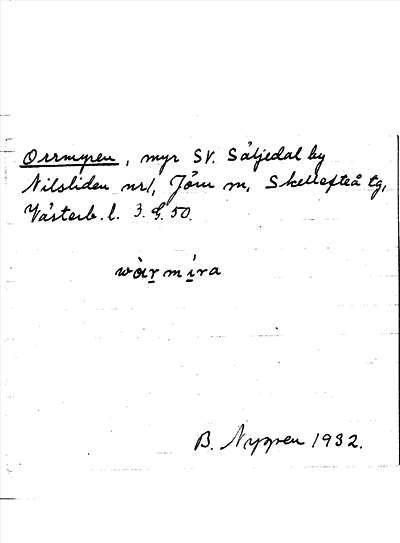 Orrmyren, myr SV. Såljedal by
Nilsliden nr 1, Jörn sn, Skellefteå tg,
Västerb. l. 3. 50.
wòir̲mí̲ra
B. Nygren 1932.